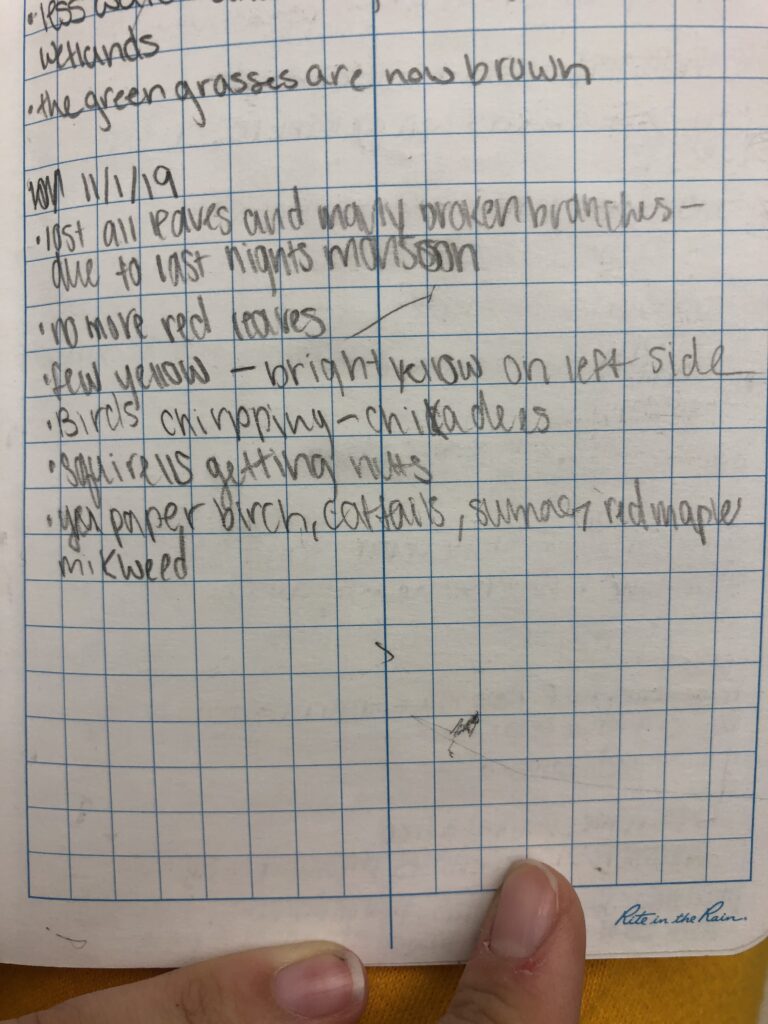 • less
wetlands
• the green grasses are now brown
11/1/19
• lost all leaves and many broken branches –
due to last nights monsoon
• no more red leaves
• few yellow – bright yellow on left side
• Birds chirpping – chikadees
• squirells getting nuts
• paper birch, cattails, sumac, red maple
milkweed
Rite in the Rain